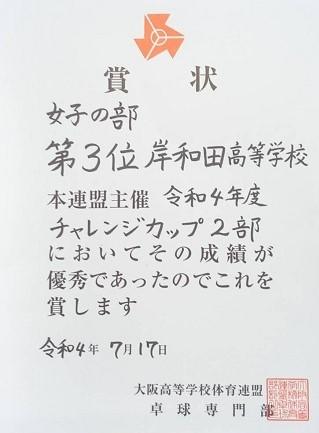 賞状
女子の部
第3位岸和田高等学校
本連盟主催 令和4年度
チャレンジカップ2部
においてその成績が
優秀であったのでこれを
賞します
令和4年 7月17日
大阪高等学校体育連盟
卓球専門部